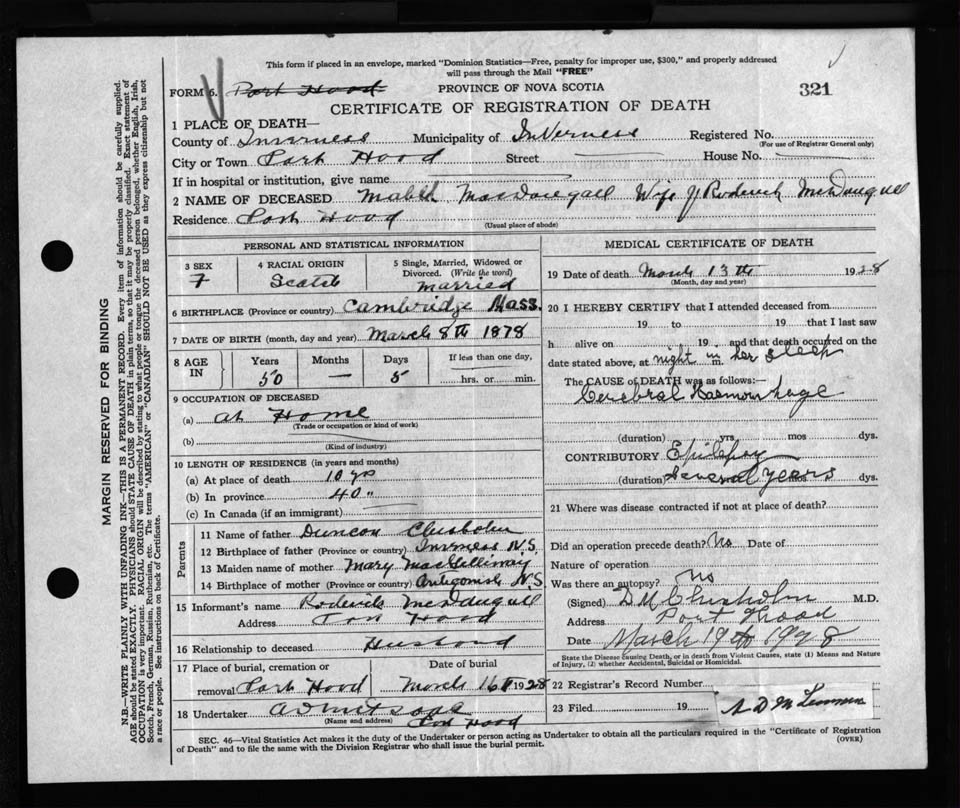 This form if placed in an envelope, marked "Dominion Statistics—Free, penalty for improper use, $300," and properly addressed
will pass through the Mail "FREE"
FORM 6. Port Hood PROVINCE OF NOVA SCOTIA 321
CERTIFICATE OF REGISTRATION OF DEATH
1 PLACE OF DEATH—
County of Inverness Municipality of Inverness Registered No.
(For use of Registrar General only)
City or Town Port Hood Street House No.
If in hospital or institution, give name
2 NAME OF DECEASED Mabel MacDougall Wife of Roderick McDougall
Residence Port Hood
(Usual place of abode)
PERSONAL AND STATISTICAL INFORMATION
3 SEX F
4 RACIAL ORIGIN Scotch
5 Single, Married, Widowed or Divorced. (Write the word) Married
6 BIRTHPLACE (Province or country) Cambridge Mass.
7 DATE OF BIRTH (month, day and year) March 8th 1878
8 AGE IN Years 50 Months — Days 5 If less than one day, hrs. or min.
9 OCCUPATION OF DECEASED
(a) at Home
(Trade or occupation or kind of work)
(b)
(Kind of industry)
10 LENGTH OF RESIDENCE (in years and months)
(a) At place of death 10 yrs
(b) In province 40 "
(c) In Canada (if an immigrant)
Parents
11 Name of father Duncan Chisholm
12 Birthplace of father (Province or country) Inverness N.S.
13 Maiden name of mother Mary MacGillivray
14 Birthplace of mother (Province or country) Antigonish N.S
15 Informant's name Roderick McDougall
Address Port Hood
16 Relationship to deceased Husband
17 Place of burial, cremation or removal Port Hood Date of burial March 16th 1928
18 Undertaker
(Name and address) Port Hood
MEDICAL CERTIFICATE OF DEATH
19 Date of death March 13th 1928
(Month, day and year)
20 I HEREBY CERTIFY that I attended deceased from
19 to 19 that I last saw
h alive on 19 and that death occurred on the
date stated above, at night in her sleep m.
The CAUSE of DEATH was as follows:—
Cerebral Haemorrhage
(duration) yrs. mos dys.
CONTRIBUTORY Epilepsy
(duration) Several years mos dys.
21 Where was disease contracted if not at place of death?
Did an operation precede death? No Date of
Nature of operation
Was there an autopsy? No
(Signed) D M Chisholm M.D.
Address Port Hood
Date March 19th 1928
State the Disease causing Death, or in death from Violent Causes, state (1) Means and Nature
of Injury, (2) whether Accidental, Suicidal or Homicidal.
22 Registrar's Record Number
23 Filed 19
SEC. 46—Vital Statistics Act makes it the duty of the Undertaker or person acting as Undertaker to obtain all the particulars required in the "Certificate of Registration
of Death" and to file the same with the Division Registrar who shall issue the burial permit. (OVER)
MARGIN RESERVED FOR BINDING
N.B.—WRITE PLAINLY WITH UNFADING INK—THIS IS A PERMANENT RECORD. Every item of information should be carefully supplied.
AGE should be stated EXACTLY. PHYSICIANS should STATE CAUSE OF DEATH in plain terms, so that it may be properly classified. Exact statement of
OCCUPATION is very important. RACIAL ORIGIN will be described by stating to what people or tongue the deceased person belonged, whether English, Irish,
Scotch, French, German, Russian, Ruthenian, etc. The terms "AMERICAN" or "CANADIAN" SHOULD NOT BE USED as they express citizenship but not
a race or people. See instructions on back of Certificate.